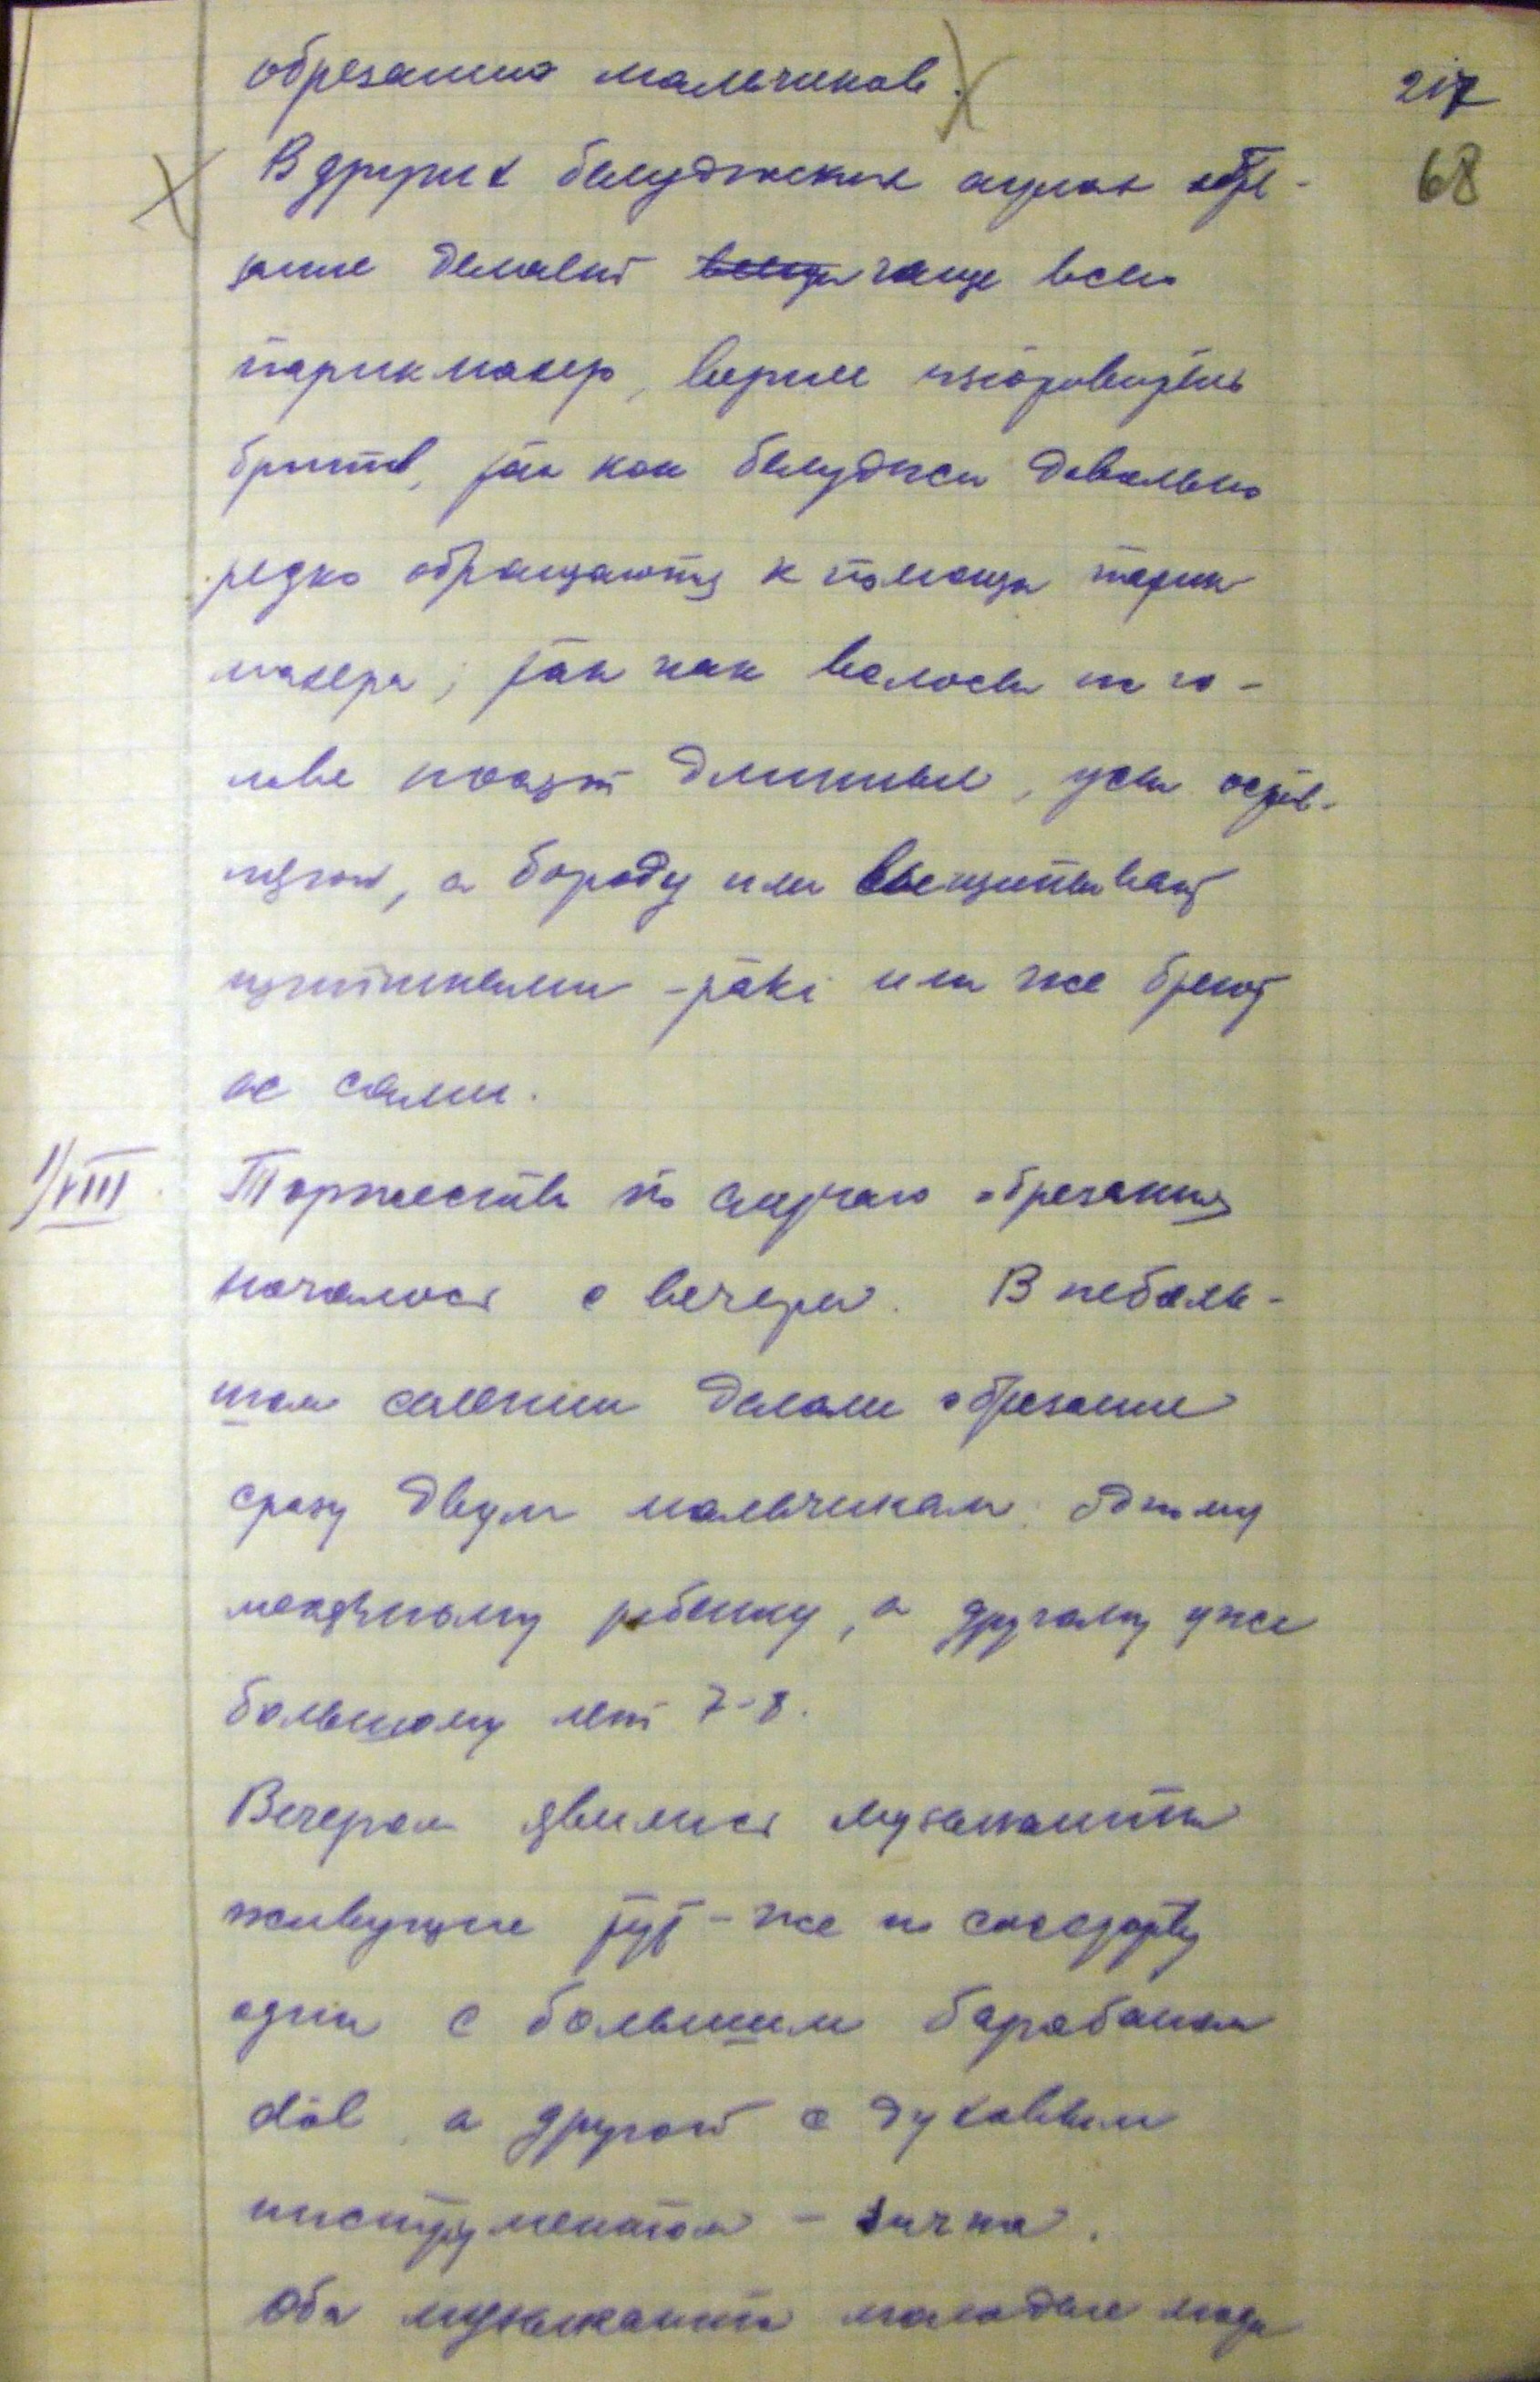 обрезания мальчиков.
217
68
В других белуджских аулах обре-
зание делает чаще всего
парикмахер, вернее изготовитель
бритв, так как белуджи довольно
редко обращаются к помощи парик
махера, так как волосы на го-
лове носят длинные, усы остав-
ляют, а бороду или выщипывают
щипчиками - рākі или же бреют
ее сами.
1/VIII
Торжество по случаю обрезания
началось с вечера. В неболь-
шом селении делали обрезание
сразу двум мальчикам: одному
ребенку, а другому уже
большому лет 7-8.
Вечером явились музыканты
живущие тут-же по соседству
один с большим барабаном
dōl, а другой с духовым
инструментом -
Оба музыканта молодые люди